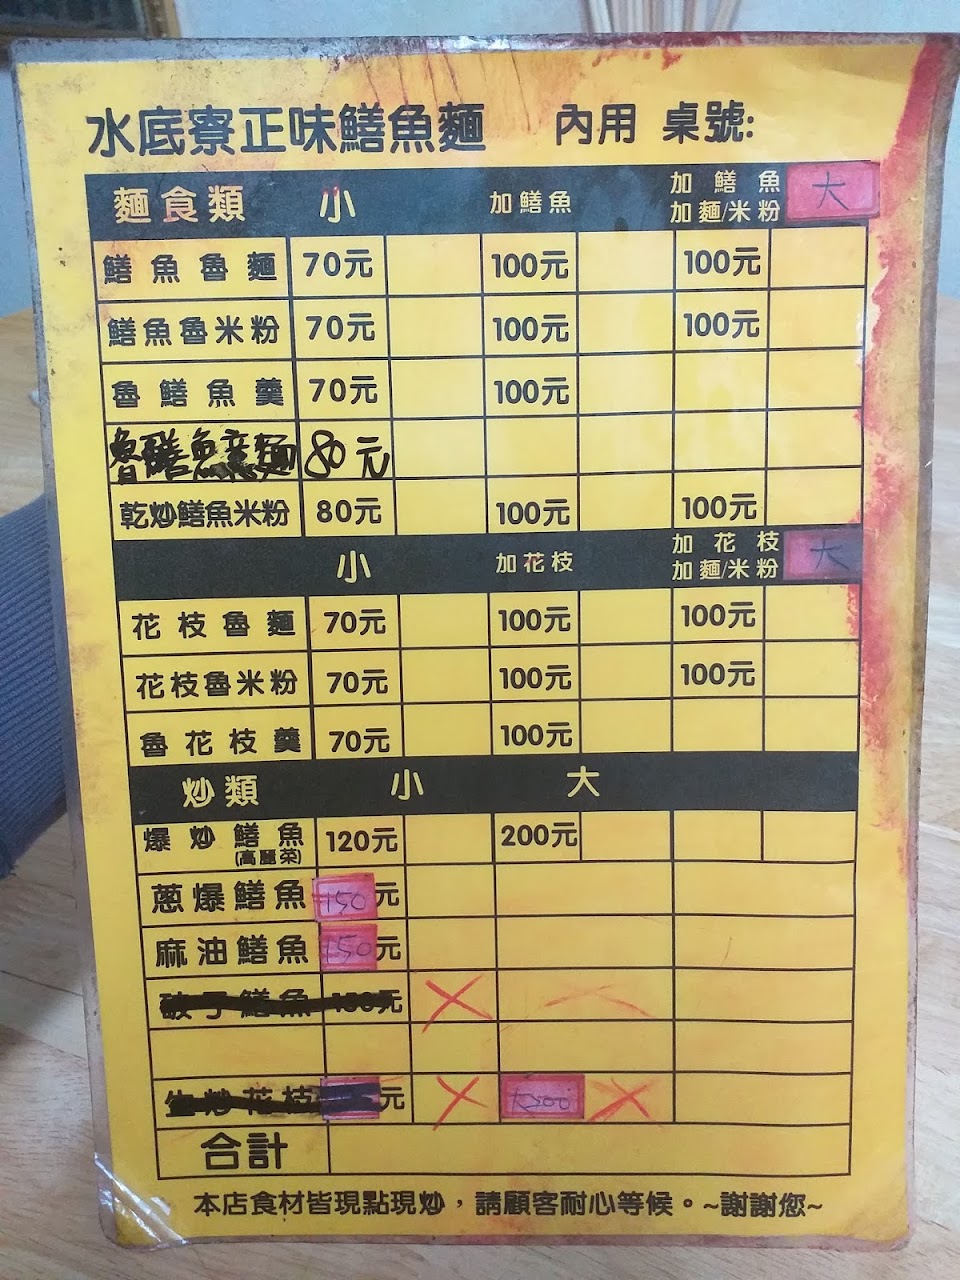 水底寮正味鱔魚麵 內用 桌號:
麵食類 小 加鱔魚 加鱔魚加麵/米粉 大
鱔魚魯麵 70元 100元 100元
鱔魚魯米粉 70元 100元 100元
魯鱔魚羹 70元 100元
魯鱔魚意麵 80元
乾炒鱔魚米粉 80元 100元 100元
小 加花枝 加花枝加麵/米粉 大
花枝魯麵 70元 100元 100元
花枝魯米粉 70元 100元 100元
魯花枝羹 70元 100元
炒類 小 大
爆炒鱔魚 120元 200元
(高麗菜)
蔥爆鱔魚 150元
麻油鱔魚 150元
破子鱔魚 150元
生炒花枝 元
合計
本店食材皆現點現炒，請顧客耐心等候。~謝謝您~